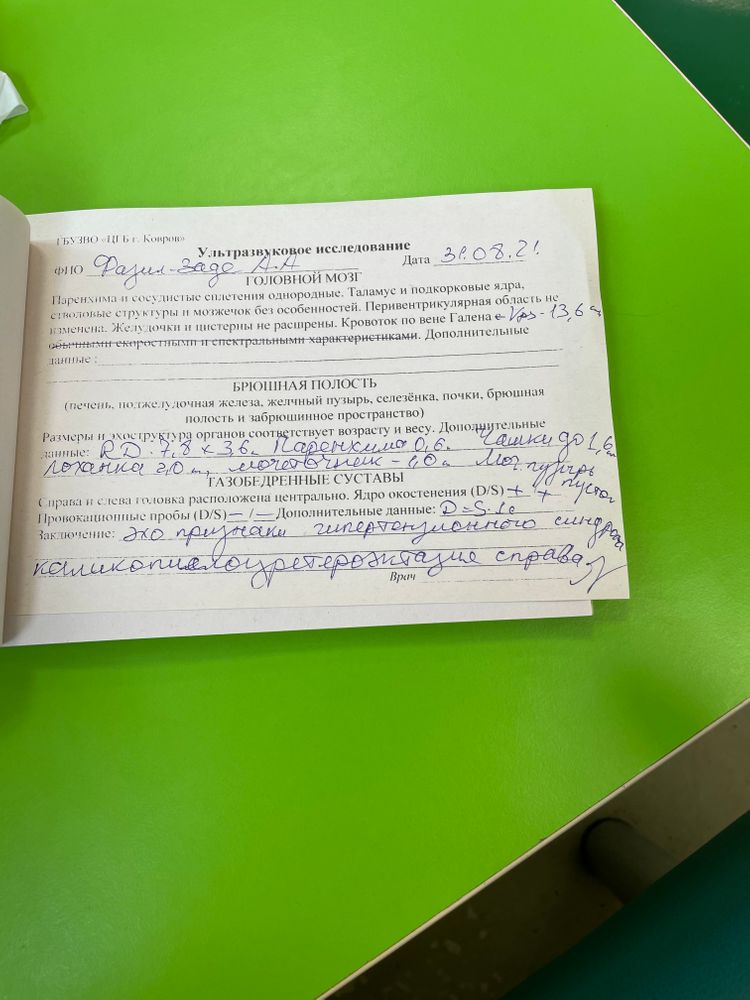 ГБУЗВО «ЦГБ г. Ковров»
Ультразвуковое исследование
ФИО Фазил-заде А.А Дата 31.08.21.
ГОЛОВНОЙ МОЗГ
Паренхима и сосудистые сплетения однородные. Таламус и подкорковые ядра,
стволовые структуры и мозжечок без особенностей. Перивентрикулярная область не
изменена. Желудочки и цистерны не расширены. Кровоток по вене Галена с - 13,6 см
обычными скоростными и спектральными характеристиками. Дополнительные
данные :
БРЮШНАЯ ПОЛОСТЬ
(печень, поджелудочная железа, желчный пузырь, селезёнка, почки, брюшная
полость и забрюшинное пространство)
Размеры и эхоструктура органов соответствует возрасту и весу. Дополнительные
данные: RD. 7,8 х 3,6 Паренхима 0,6. Чашки до 1,6
лоханка 2,0 мочеточник - 1,0 Моч. пузырь
пустой
ГАЗОБЕДРЕННЫЕ СУСТАВЫ
Справа и слева головка расположена центрально. Ядро окостенения (D/S) + / +
Провокационные пробы (D/S) – / – Дополнительные данные: D = S
Заключение: Эхо признаки гипертензионного синдрома
каликопиелоуретероэктазия справа
Врач